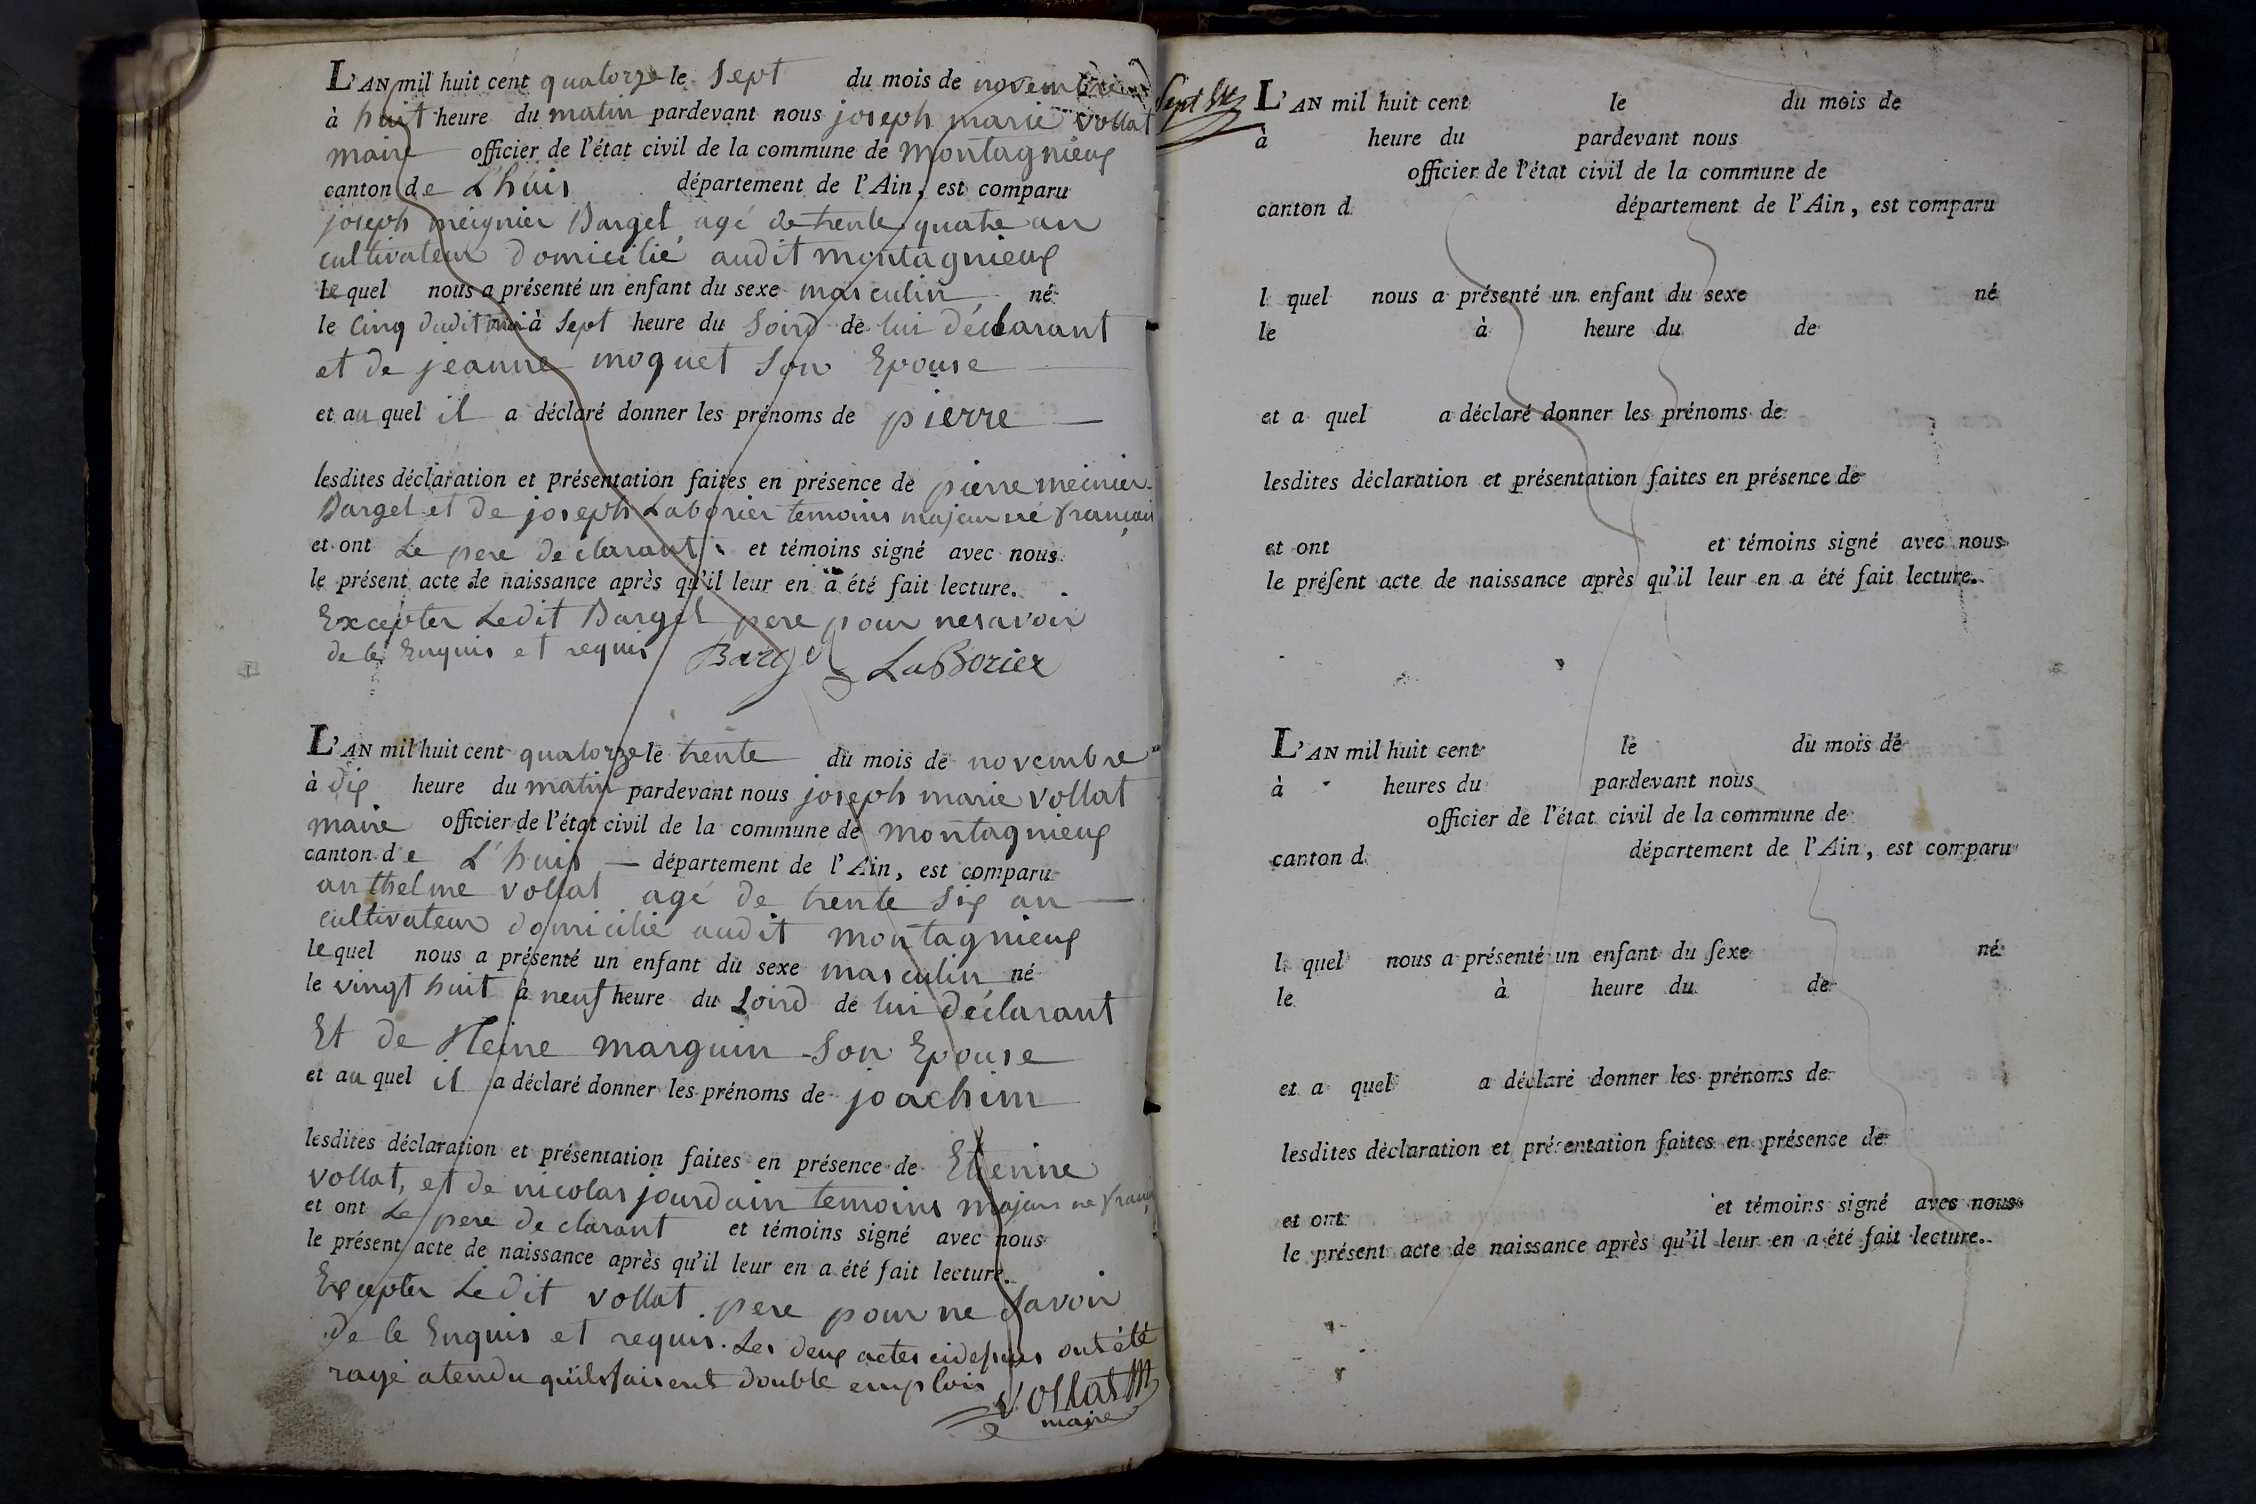 L'AN mil huit cent quatorze le Sept du mois de novembre
à huit heure du matin pardevant nous joseph marie vollat
maire officier de l'état civil de la commune de montagnieux
canton de L'huis département de l'Ain, est comparu
joseph meignier Barget agé de trente quatre an
cultivateur domicilié audit montagnieux
le quel nous a présenté un enfant du sexe masculin né
le Cinq dudit moi à Sept heure du Soird de lui déclarant
et de jeanne moquet Son Epouse
et au quel il a déclaré donner les prénoms de pierre
lesdites déclaration et présentation faites en présence de pierre meinier
Barget et de joseph Laborier temoins majeur né françois
et ont Le pere declarant et témoins signé avec nous
le présent acte de naissance après qu'il leur en a été fait lecture.
Excepter Ledit Barget pere pour nesavoir
de le Enquis et requis Barget LaBorier
L'AN mil huit cent quatorze le trente du mois de novembre
à dix heure du matin pardevant nous joseph marie vollat
maire officier de l'état civil de la commune de montagnieux
canton de L'huis département de l'Ain, est comparu
anthelme vollat agé de trente Six an
cultivateur domicilié audit montagnieux
le quel nous a présenté un enfant du sexe masculin né
le vingt huit à neuf heure du Soird de lui déclarant
Et de Reine marguin Son Epouse
et au quel il a déclaré donner les prénoms de joachim
lesdites déclaration et présentation faites en présence de Etienne
vollat, et de nicolas jourdain temoins majeur ne
et ont Le pere declarant et témoins signé avec nous
le présent acte de naissance après qu'il leur en a été fait lecture.
Excepter Ledit vollat pere pour ne Savoir
de le Enquis et requis. Les deux actes cidessus ont été
rayé atendu quils faisent double emplois
vollat M
maire
Sept
L'AN mil huit cent le du mois de
à heure du pardevant nous
officier de l'état civil de la commune de
canton d département de l'Ain, est comparu
l quel nous a présenté un enfant du sexe né
le à heure du de
et a quel a déclaré donner les prénoms de
lesdites déclaration et présentation faites en présence de
et ont et témoins signé avec nous
le préſent acte de naissance après qu'il leur en a été fait lecture.
L'AN mil huit cent le du mois de
à heures du pardevant nous
officier de l'état civil de la commune de
canton d département de l'Ain, est comparu
l quel nous a présenté un enfant du ſexe né
le à heure du de
et a quel a déclaré donner les prénoms de
lesdites déclaration et présentation faites en présence de
et ont et témoins signé avec nous
le présent acte de naissance après qu'il leur en a été fait lecture.